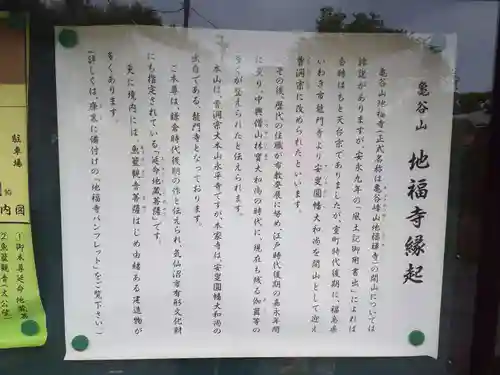 龜谷山 地福寺縁起
龜谷山地福寺(正式名称は龜谷峰山地福禅寺)の開山については
諸説がありますが、安永九年の「風土記御用書出」によれば
会時はもと天台宗でありましたが、室町時代後期に、福島県
いわき市龍門寺より安叟圓幡大和尚を開山として迎え
曹洞宗に改められたといいます。
その後、歴代の住職が寺教発展に努め、江戸時代後期の嘉永年間
に至り、中興僧山林寶大和尚の時代に、現在も残る伽藍等の
多くが整えられたと伝えられます。
本山は、曹洞宗大本山永平寺ですが、本家寺は、安叟圓幡大和尚の
出自である、龍門寺となっております。
ご本尊は、鎌倉時代後期の作と伝えられ、気仙沼市有形文化財
にも指定されている「延命地蔵菩薩」です。
更に境内には、魚籃観音菩薩はじめ由緒ある建造物が
多くあります。
(詳しくは、庫裏に備付けの「地福寺パンフレット」をご覧下さい)
駐車場
内図
①御本尊延命地蔵菩
②魚籃観音(大公